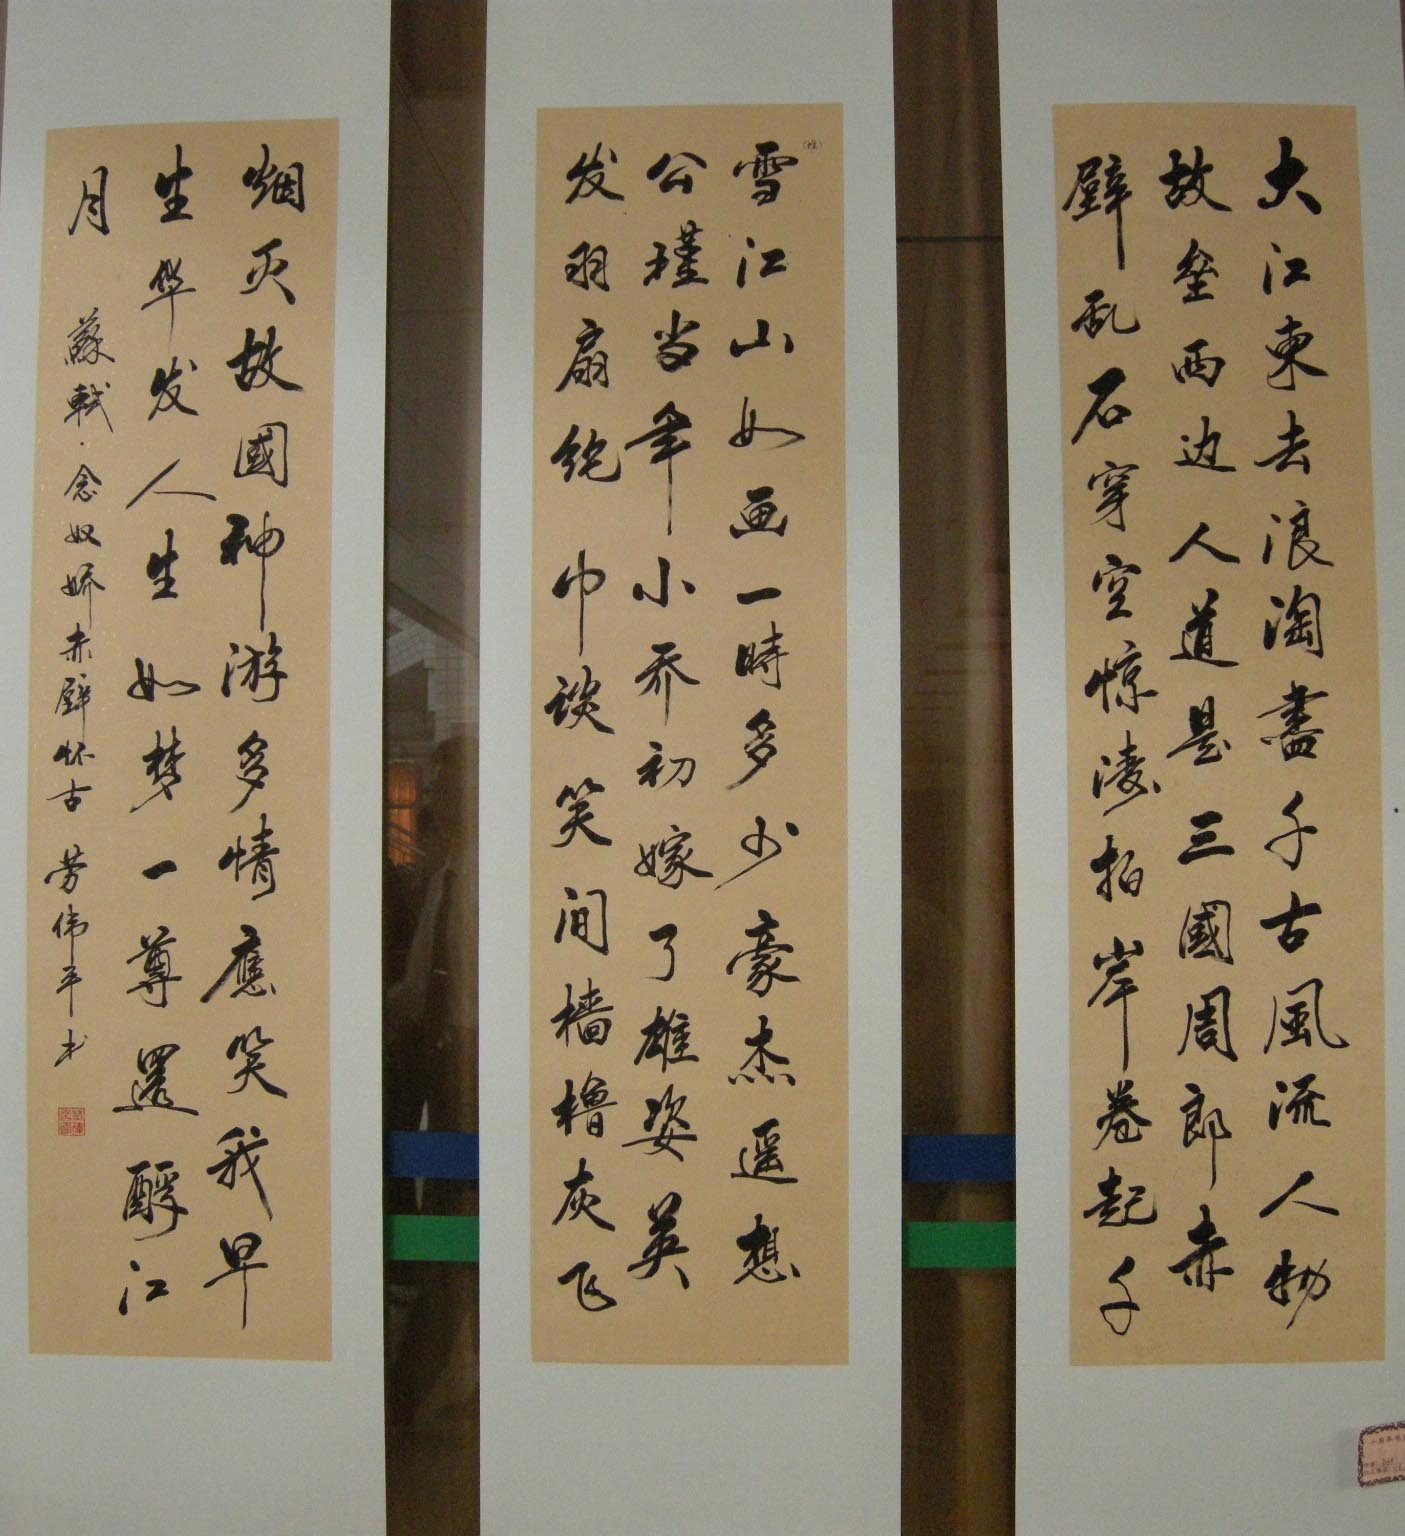 大江東去浪淘盡千古風流人物
故垒西边人道是三國周郎赤
壁乱石穿空惊涛拍岸卷起千
堆
雪江山如画一時多少豪杰遥想
公瑾当年小乔初嫁了雄姿英
发羽扇纶巾谈笑间樯橹灰飞
烟灭故國神游多情應笑我早
生华发人生如梦一尊還酹江
月
蘇軾·念奴娇赤壁怀古 劳伟平书